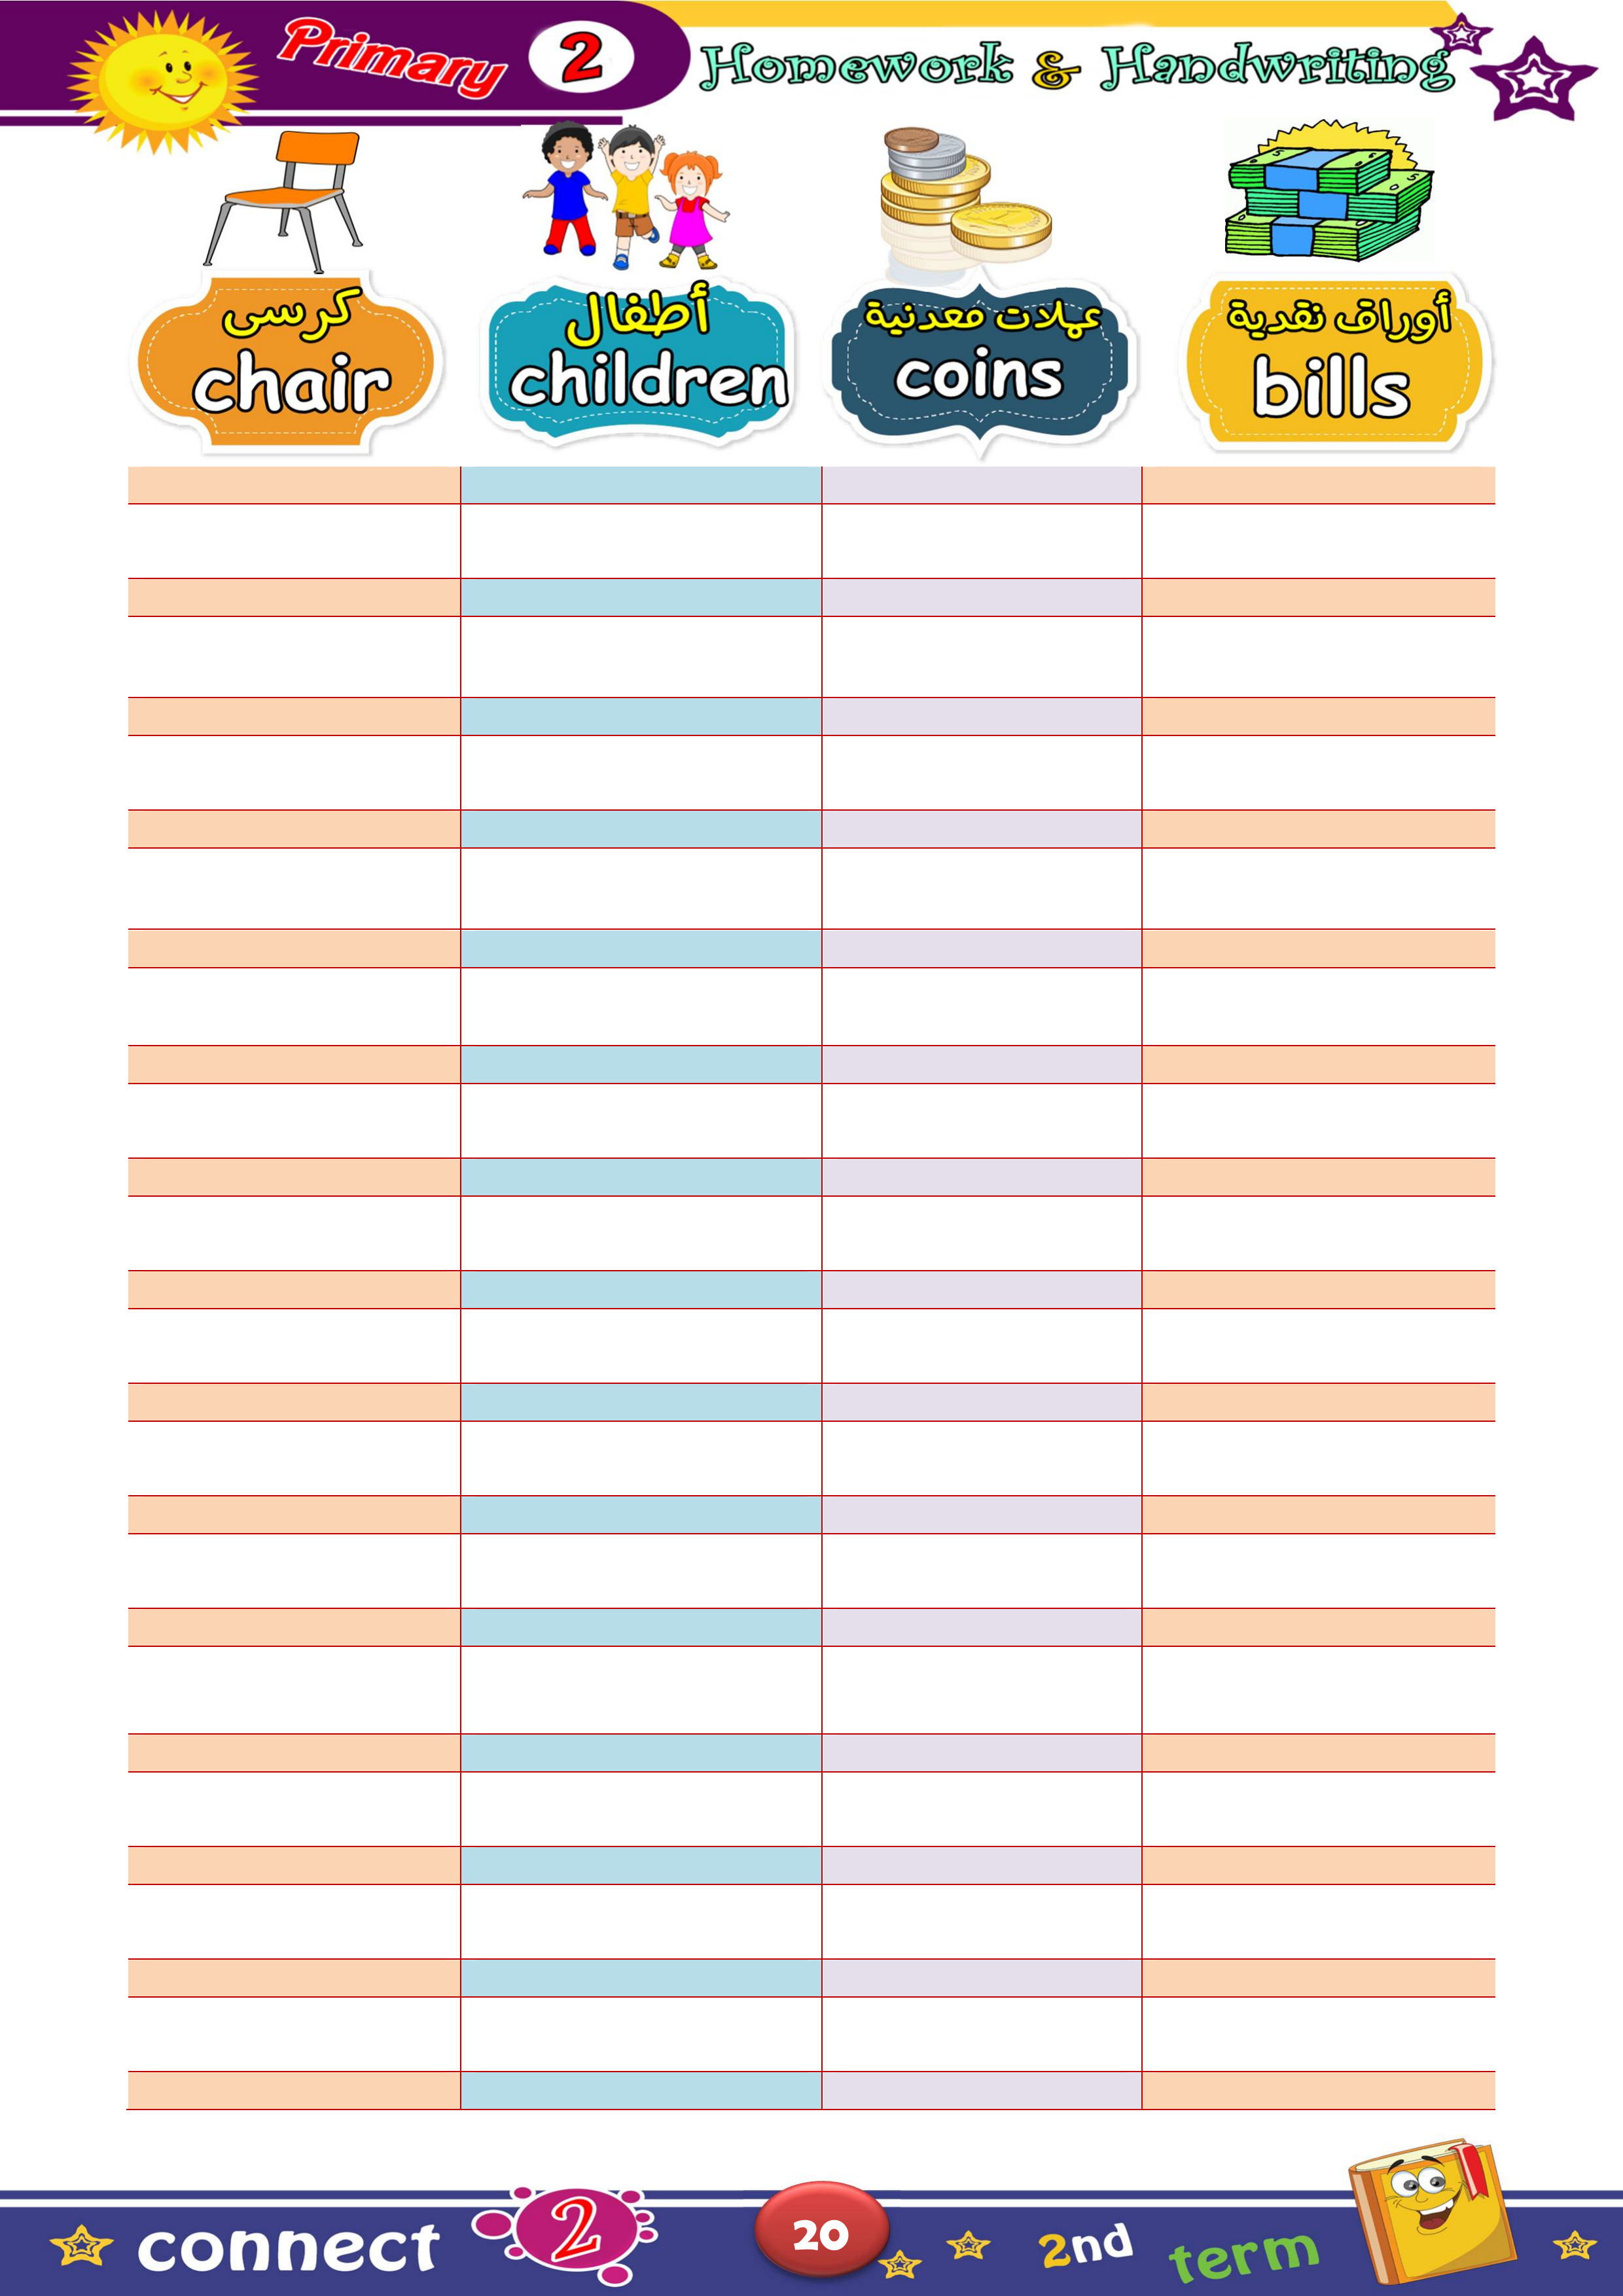 Primary 2 Homework & Handwriting
كرسى
chair
أطفال
children
عملات معدنية
coins
أوراق نقدية
bills
connect 2 20 2nd term